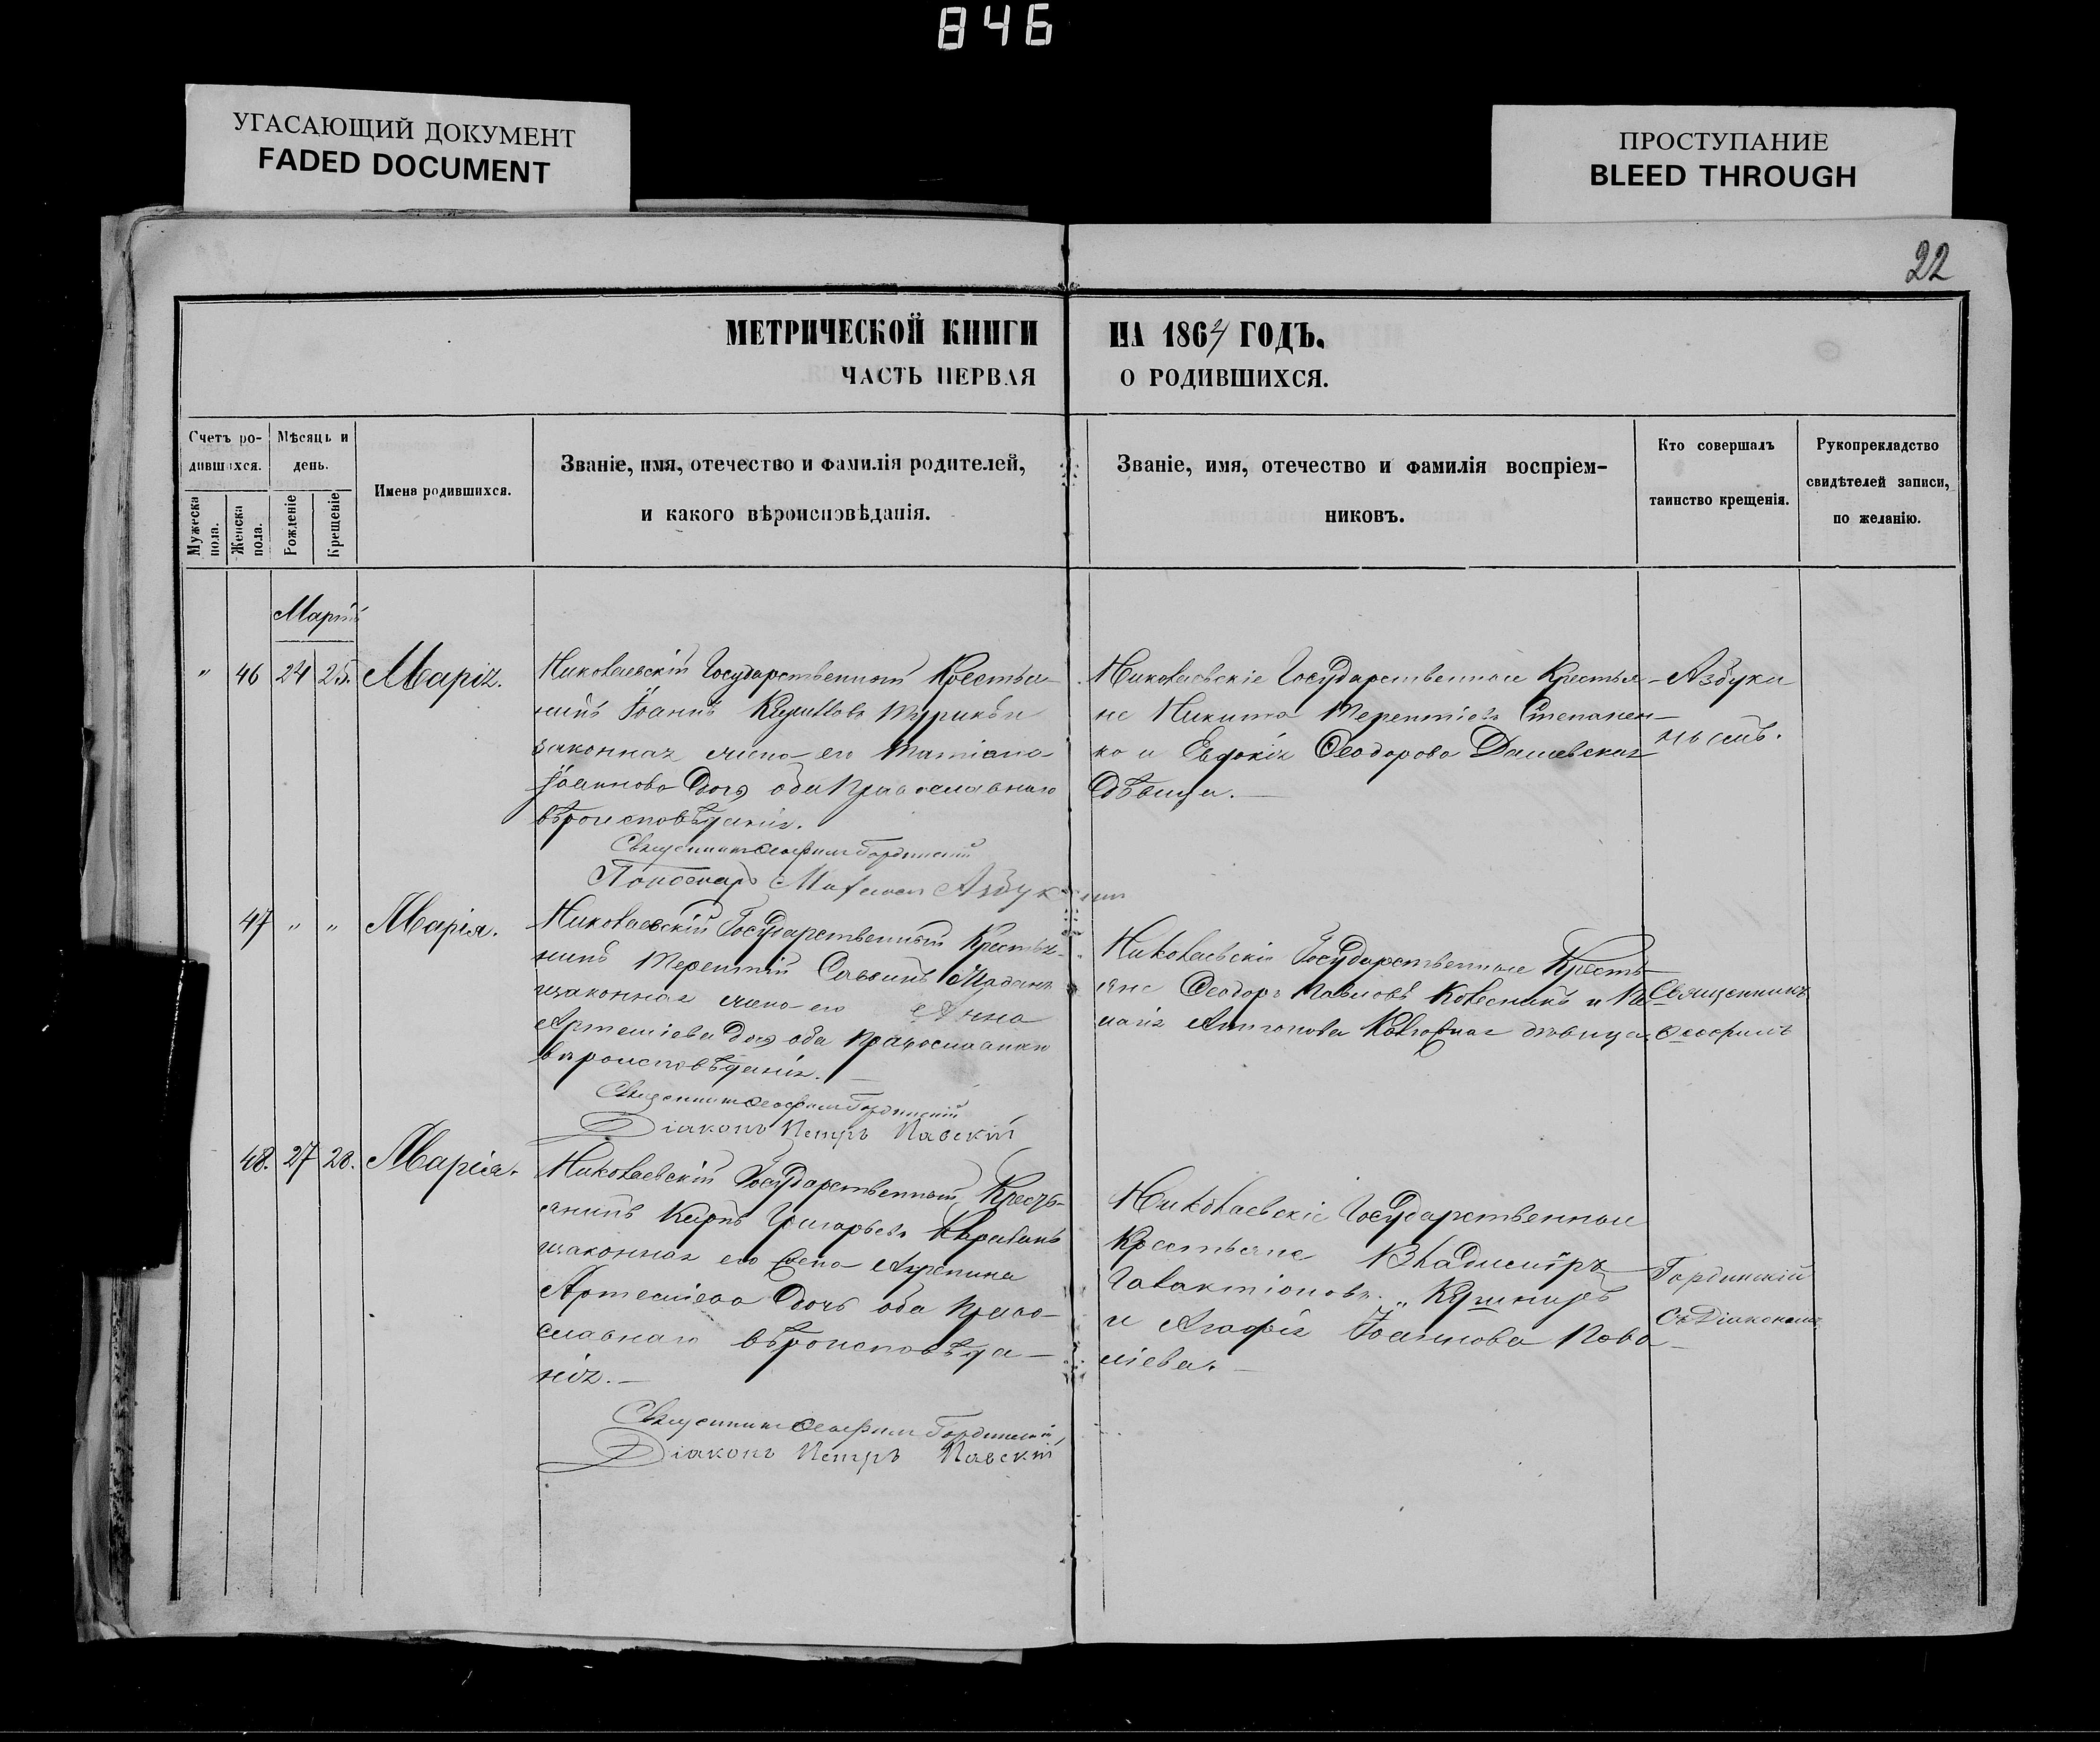 846
УГАСАЮЩИЙ ДОКУМЕНТ
FADED DOCUMENT
ПРОСТУПАНИЕ
BLEED THROUGH
22
МЕТРИЧЕСКОЙ КНИГИ НА 1864 ГОДЪ.
ЧАСТЬ ПЕРВАЯ О РОДИВШИХСЯ.
Счетъ родившихся.
Мужеска пола.
Женска пола.
Мѣсяцъ и день.
Рожденіе
Крещеніе
Имена родившихся.
Званіе, имя, отечество и фамилія родителей,
и какого вѣроисповѣданія.
Званіе, имя, отечество и фамилія воспріем-
никовъ.
Кто совершалъ
таинство крещенія.
Рукоприкладство
свидѣтелей записи,
по желанію.
Мартъ
" 46 24 25. Марія.
Николаевскій Государственный Крестья-
нинъ Іоаннъ
законная жена его Татіана
Іоаннова Дочь оба Православнаго
вѣроисповѣданія.
Священникъ Ѳеофилъ Гординскій
Николаевскіе Государственные Крестья-
не Никита Терентіевъ Степанен-
ко и Евдокія Ѳеодорова Дашевская
Дѣвица.
47 " " Марія.
Николаевскій Государственный Крестья-
нинъ Терентій
законная жена его Анна
Артеміева Дочь оба Православнаго
вѣроисповѣданія.
Священникъ Ѳеофилъ Гординскій
Діаконъ Петръ Павскій
Николаевскіе Государственные Кресть-
яне Ѳеодоръ Павловъ Колесникъ и
Антонова дѣвица.
Священникъ
Ѳеофилъ
48. 27 28. Марія.
Николаевскій Государственный Кресть-
янинъ Карпъ Григорьевъ
законная его жена Агрепина
Артеміева Дочь оба Право-
славнаго вѣроисповѣда-
нія.
Священникъ Ѳеофилъ Гординскій
Діаконъ Петръ Павскій
Николаевскіе Государственные
Крестьяне Владиміръ
Галактіоновъ
и Агафія Іоаннова
Гординскій
Съ Діакономъ